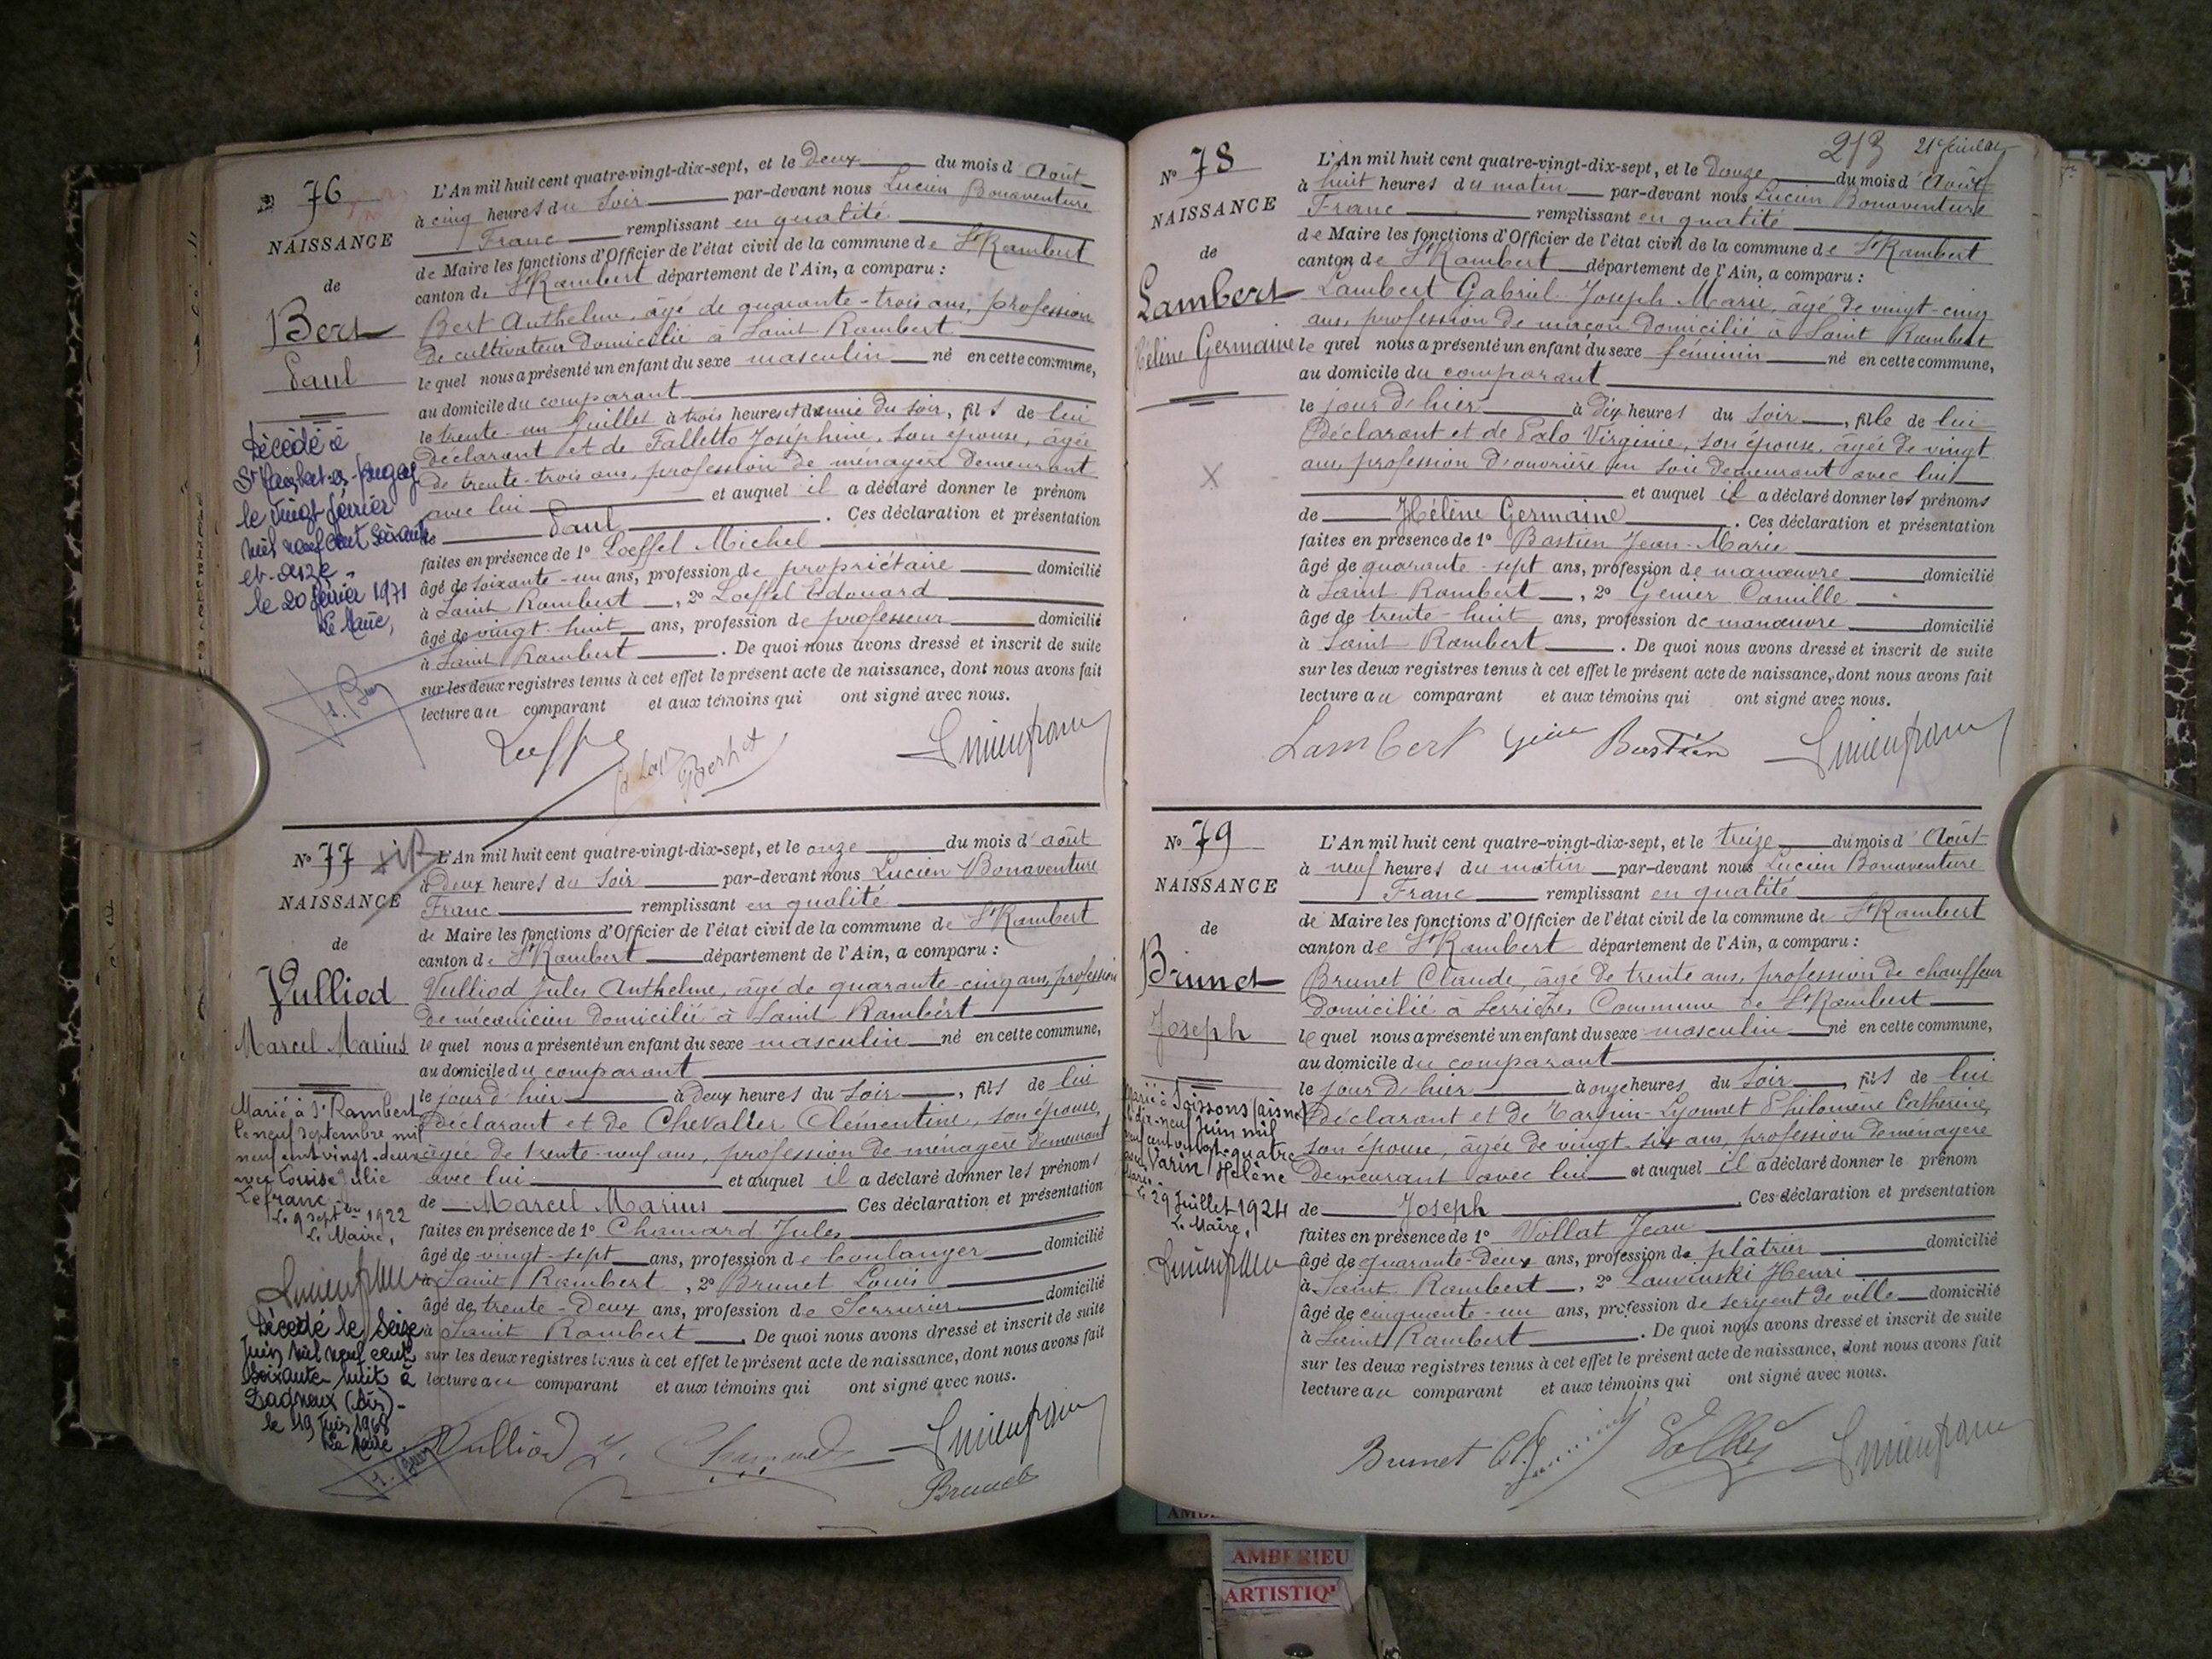 213 21e feuillet
No 76
NAISSANCE
de
Bert
Paul
Décédé à
St Rambert-en-Bugey
le vingt février
mil neuf cent soixante
et-onze
le 20 février 1971
Le Maire,
L'An mil huit cent quatre-vingt-dix-sept, et le deux du mois d'Août
à cinq heures du soir par-devant nous Lucien Bonaventure
Franc remplissant en qualité
de Maire les fonctions d'Officier de l'état civil de la commune de St Rambert
canton de St Rambert département de l'Ain, a comparu :
Bert Anthelme, âgé de quarante-trois ans, profession
de cultivateur domicilié à Saint Rambert
lequel nous a présenté un enfant du sexe masculin né en cette commune,
au domicile du comparant
le trente-un Juillet à trois heures et demie du soir, fils de lui
déclarant et de Falletto Joséphine, son épouse, âgée
de trente-trois ans, profession de ménagère demeurant
avec lui et auquel il a déclaré donner le prénom
de Paul . Ces déclaration et présentation
faites en présence de 1° Loeffel Michel
âgé de soixante-un ans, profession de propriétaire domicilié
à Saint Rambert , 2° Loeffel Edouard
âgé de vingt-huit ans, profession de professeur domicilié
à Saint Rambert . De quoi nous avons dressé et inscrit de suite
sur les deux registres tenus à cet effet le présent acte de naissance, dont nous avons fait
lecture au comparant et aux témoins qui ont signé avec nous.
No 77
NAISSANCE
de
Vulliod
Marcel Marius
Marié à St Rambert
le neuf septembre mil
neuf cent vingt-deux
avec Louise Julie
Lefranc
Le 9 septbre 1922
Le Maire,
Lucien franc
Décédé le seize
Juin mil neuf cent
soixante huit à
Dagneux (Ain)-
le 19 Juin 1968
Le Maire
L'An mil huit cent quatre-vingt-dix-sept, et le onze du mois d'août
à deux heures du soir par-devant nous Lucien Bonaventure
Franc remplissant en qualité
de Maire les fonctions d'Officier de l'état civil de la commune de St Rambert
canton de St Rambert département de l'Ain, a comparu :
Vulliod Jules Anthelme, âgé de quarante-cinq ans, profession
de mécanicien domicilié à Saint Rambert
lequel nous a présenté un enfant du sexe masculin né en cette commune,
au domicile du comparant
le jour d'hier à deux heures du soir , fils de lui
déclarant et de Chevalier Clémentine, son épouse,
âgée de trente-neuf ans, profession de ménagère demeurant
avec lui et auquel il a déclaré donner les prénoms
de Marcel Marius Ces déclaration et présentation
faites en présence de 1° Chamard Jules
âgé de vingt-sept ans, profession de boulanger domicilié
à Saint Rambert , 2° Brunet Louis
âgé de trente-deux ans, profession de Serrurier domicilié
à Saint Rambert . De quoi nous avons dressé et inscrit de suite
sur les deux registres tenus à cet effet le présent acte de naissance, dont nous avons fait
lecture au comparant et aux témoins qui ont signé avec nous.
Vulliod J. Chamard Lucien franc
Brunet
No 78
NAISSANCE
de
Lambert
Hélène Germaine
L'An mil huit cent quatre-vingt-dix-sept, et le douze du mois d'Août
à huit heures du matin par-devant nous Lucien Bonaventure
Franc remplissant en qualité
de Maire les fonctions d'Officier de l'état civil de la commune de St Rambert
canton de St Rambert département de l'Ain, a comparu :
Lambert Gabriel Joseph Marie, âgé de vingt-cinq
ans, profession de maçon domicilié à Saint Rambert
lequel nous a présenté un enfant du sexe féminin né en cette commune,
au domicile du comparant
le jour d'hier à dix heures du soir , fille de lui
déclarant et de Palo Virginie, son épouse, âgée de vingt
ans, profession d'ouvrière en soie demeurant avec lui
et auquel il a déclaré donner les prénoms
de Hélène Germaine . Ces déclaration et présentation
faites en présence de 1° Bastien Jean-Marie
âgé de quarante-sept ans, profession de manœuvre domicilié
à Saint Rambert , 2° Genier Camille
âgé de trente-huit ans, profession de manœuvre domicilié
à Saint Rambert . De quoi nous avons dressé et inscrit de suite
sur les deux registres tenus à cet effet le présent acte de naissance, dont nous avons fait
lecture au comparant et aux témoins qui ont signé avec nous.
Lambert Bastien Lucien franc
No 79
NAISSANCE
de
Brunet
Joseph
Marié à Soissons (Aisne)
le dix-neuf Juin mil
neuf cent vingt-quatre
avec Varin Hélène
Le 29 Juillet 1924
Le Maire,
Lucien franc
L'An mil huit cent quatre-vingt-dix-sept, et le treize du mois d'Août
à neuf heures du matin par-devant nous Lucien Bonaventure
Franc remplissant en qualité
de Maire les fonctions d'Officier de l'état civil de la commune de St Rambert
canton de St Rambert département de l'Ain, a comparu :
Brunet Claude, âgé de trente ans, profession de chauffeur
domicilié à Serrières, Commune de St Rambert
lequel nous a présenté un enfant du sexe masculin né en cette commune,
au domicile du comparant
le jour d'hier à onze heures du soir , fils de lui
déclarant et de Lyonnet Philomène Catherine,
son épouse, âgée de vingt-six ans, profession de ménagère
demeurant avec lui et auquel il a déclaré donner le prénom
de Joseph . Ces déclaration et présentation
faites en présence de 1° Vollat Jean
âgé de quarante-deux ans, profession de plâtrier domicilié
à Saint Rambert , 2° Lauvinski Henri
âgé de cinquante-un ans, profession de sergent de ville domicilié
à Saint Rambert . De quoi nous avons dressé et inscrit de suite
sur les deux registres tenus à cet effet le présent acte de naissance, dont nous avons fait
lecture au comparant et aux témoins qui ont signé avec nous.
Brunet Lucien franc
AMBERIEU
ARTISTIQ